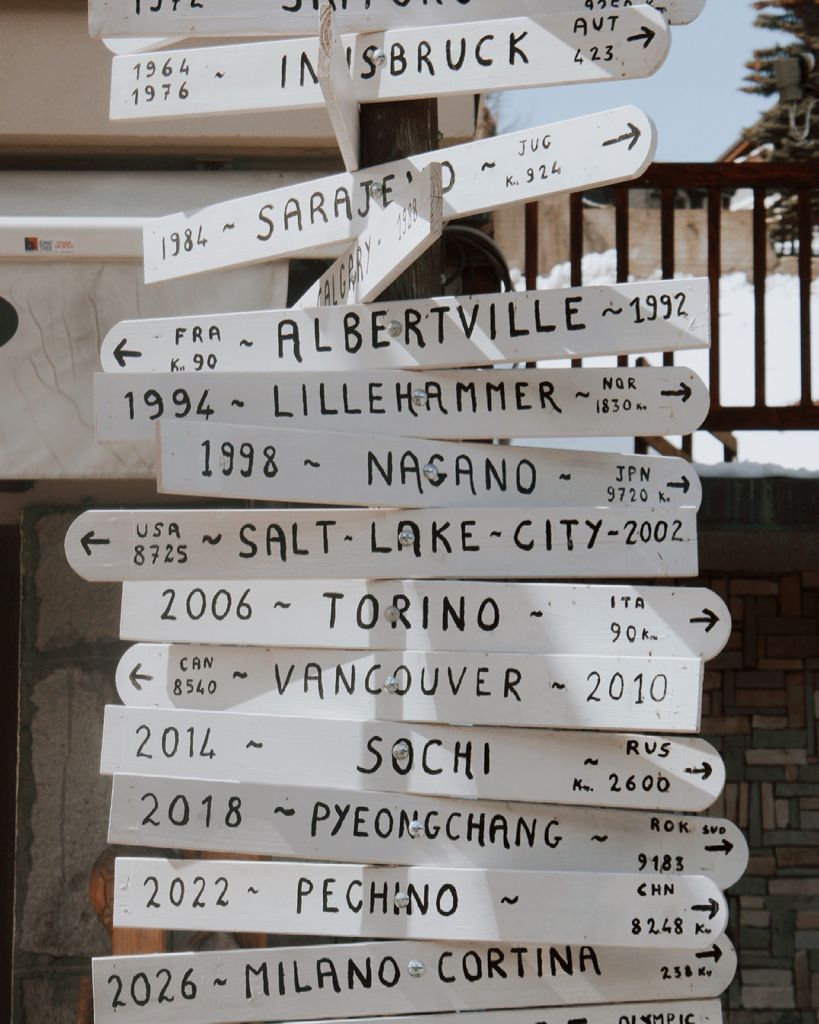 1972 SAPPORO 9250 Km
1964 1976 ~ INNSBRUCK AUT 423 →
1984 ~ SARAJEVO ~ JUG Km 924 →
CALGARY - 1988
← FRA Km 90 ~ ALBERTVILLE ~ 1992
1994 ~ LILLEHAMMER ~ NOR 1830 Km →
1998 ~ NAGANO ~ JPN 9720 Km →
← USA 8725 ~ SALT - LAKE ~ CITY - 2002
2006 ~ TORINO ~ ITA 90 Km →
← CAN 8540 ~ VANCOUVER ~ 2010
2014 ~ SOCHI ~ RUS Km 2600 →
2018 ~ PYEONGCHANG ~ ROK SUD 9183 →
2022 ~ PECHINO ~ CHN 8248 Km →
2026 ~ MILANO CORTINA 238 Km →
OLYMPIC